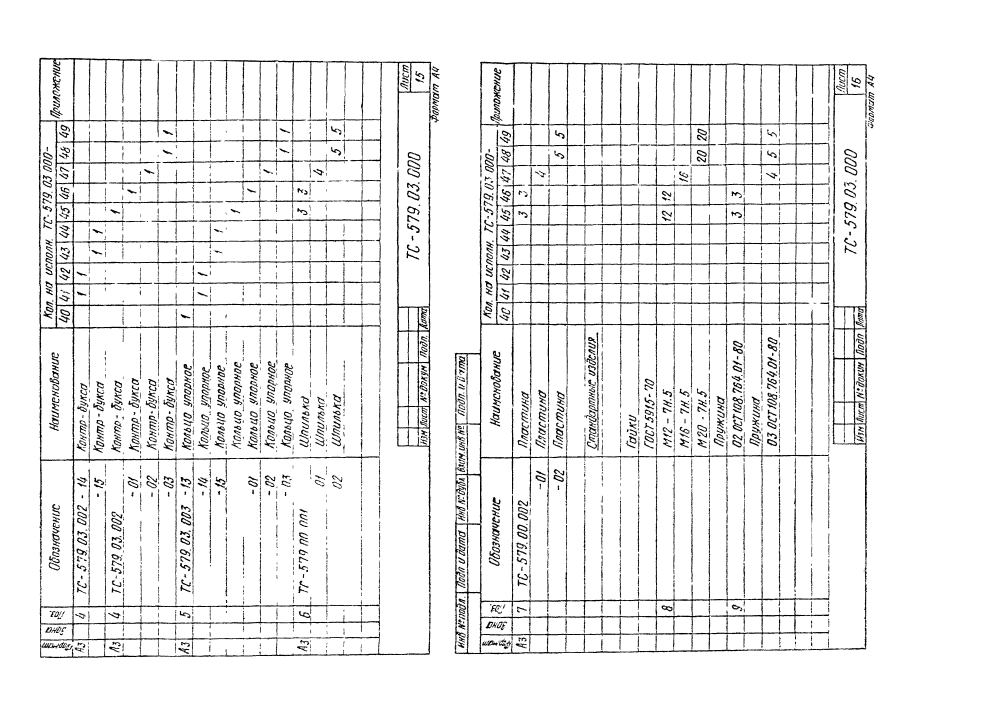 Формат Зона Поз. Обозначение Наименование Кол. на исполн. ТС-579.03.000- Приложение
40 41 42 43 44 45 46 47 48 49
А3 4 ТС-579.03.002 - 14 Контр-букса 1 1
- 15 Контр-букса 1 1
А3 4 ТС-579.03.002 Контр-букса 1
- 01 Контр-букса 1
- 02 Контр-букса 1
- 03 Контр-букса 1 1
А3 5 ТС-579.03.003 - 13 Кольцо упорное 1
- 14 Кольцо упорное 1 1
- 15 Кольцо упорное 1 1
Кольцо упорное 1
- 01 Кольцо упорное 1
- 02 Кольцо упорное 1
- 03 Кольцо упорное 1 1
А3 6 ТС-579.00.001 Шпилька 3 3
01 Шпилька 4
02 Шпилька 5 5
Изм Лист № докум Подп. Дата
ТС-579.03.000
Лист 15
Формат А4
Инв № подл. Подп и дата Инв № дубл Взам.инв № Подп. и дата
Формат Зона Поз. Обозначение Наименование Кол. на исполн. ТС-579.03.000- Приложение
40 41 42 43 44 45 46 47 48 49
А3 7 ТС-579.00.002 Пластина 3 3
- 01 Пластина 4
- 02 Пластина 5 5
Стандартные изделия
Гайки
ГОСТ 5915-70
8 М12 - 7Н.5 12 12
М16 - 7Н.5 16
М20 - 7Н.5 20 20
Пружина
9 02 ОСТ 108.764.01-80 3 3
Пружина
03 ОСТ 108.764.01-80 4 5 5
Изм Лист № докум Подп Дата
ТС-579.03.000
Лист 16
Формат А4